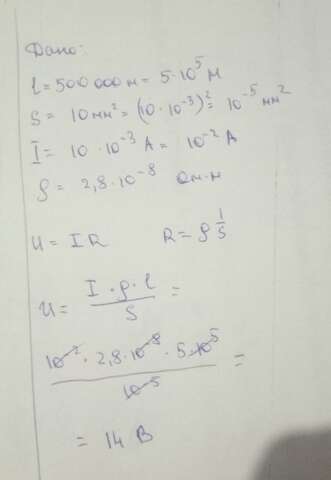 Дано:
l = 500 000 м = 5·10⁵ м
S = 10 мм² = (10·10⁻³)² = 10⁻⁵ мм²
I = 10·10⁻³ А = 10⁻² А
ρ = 2,8·10⁻⁸ Ом·м
U = IR R = ρ l/S
U = I·ρ·l/S =
10⁻²·2,8·10⁻⁸·5·10⁵/10⁻⁵ =
= 14 В